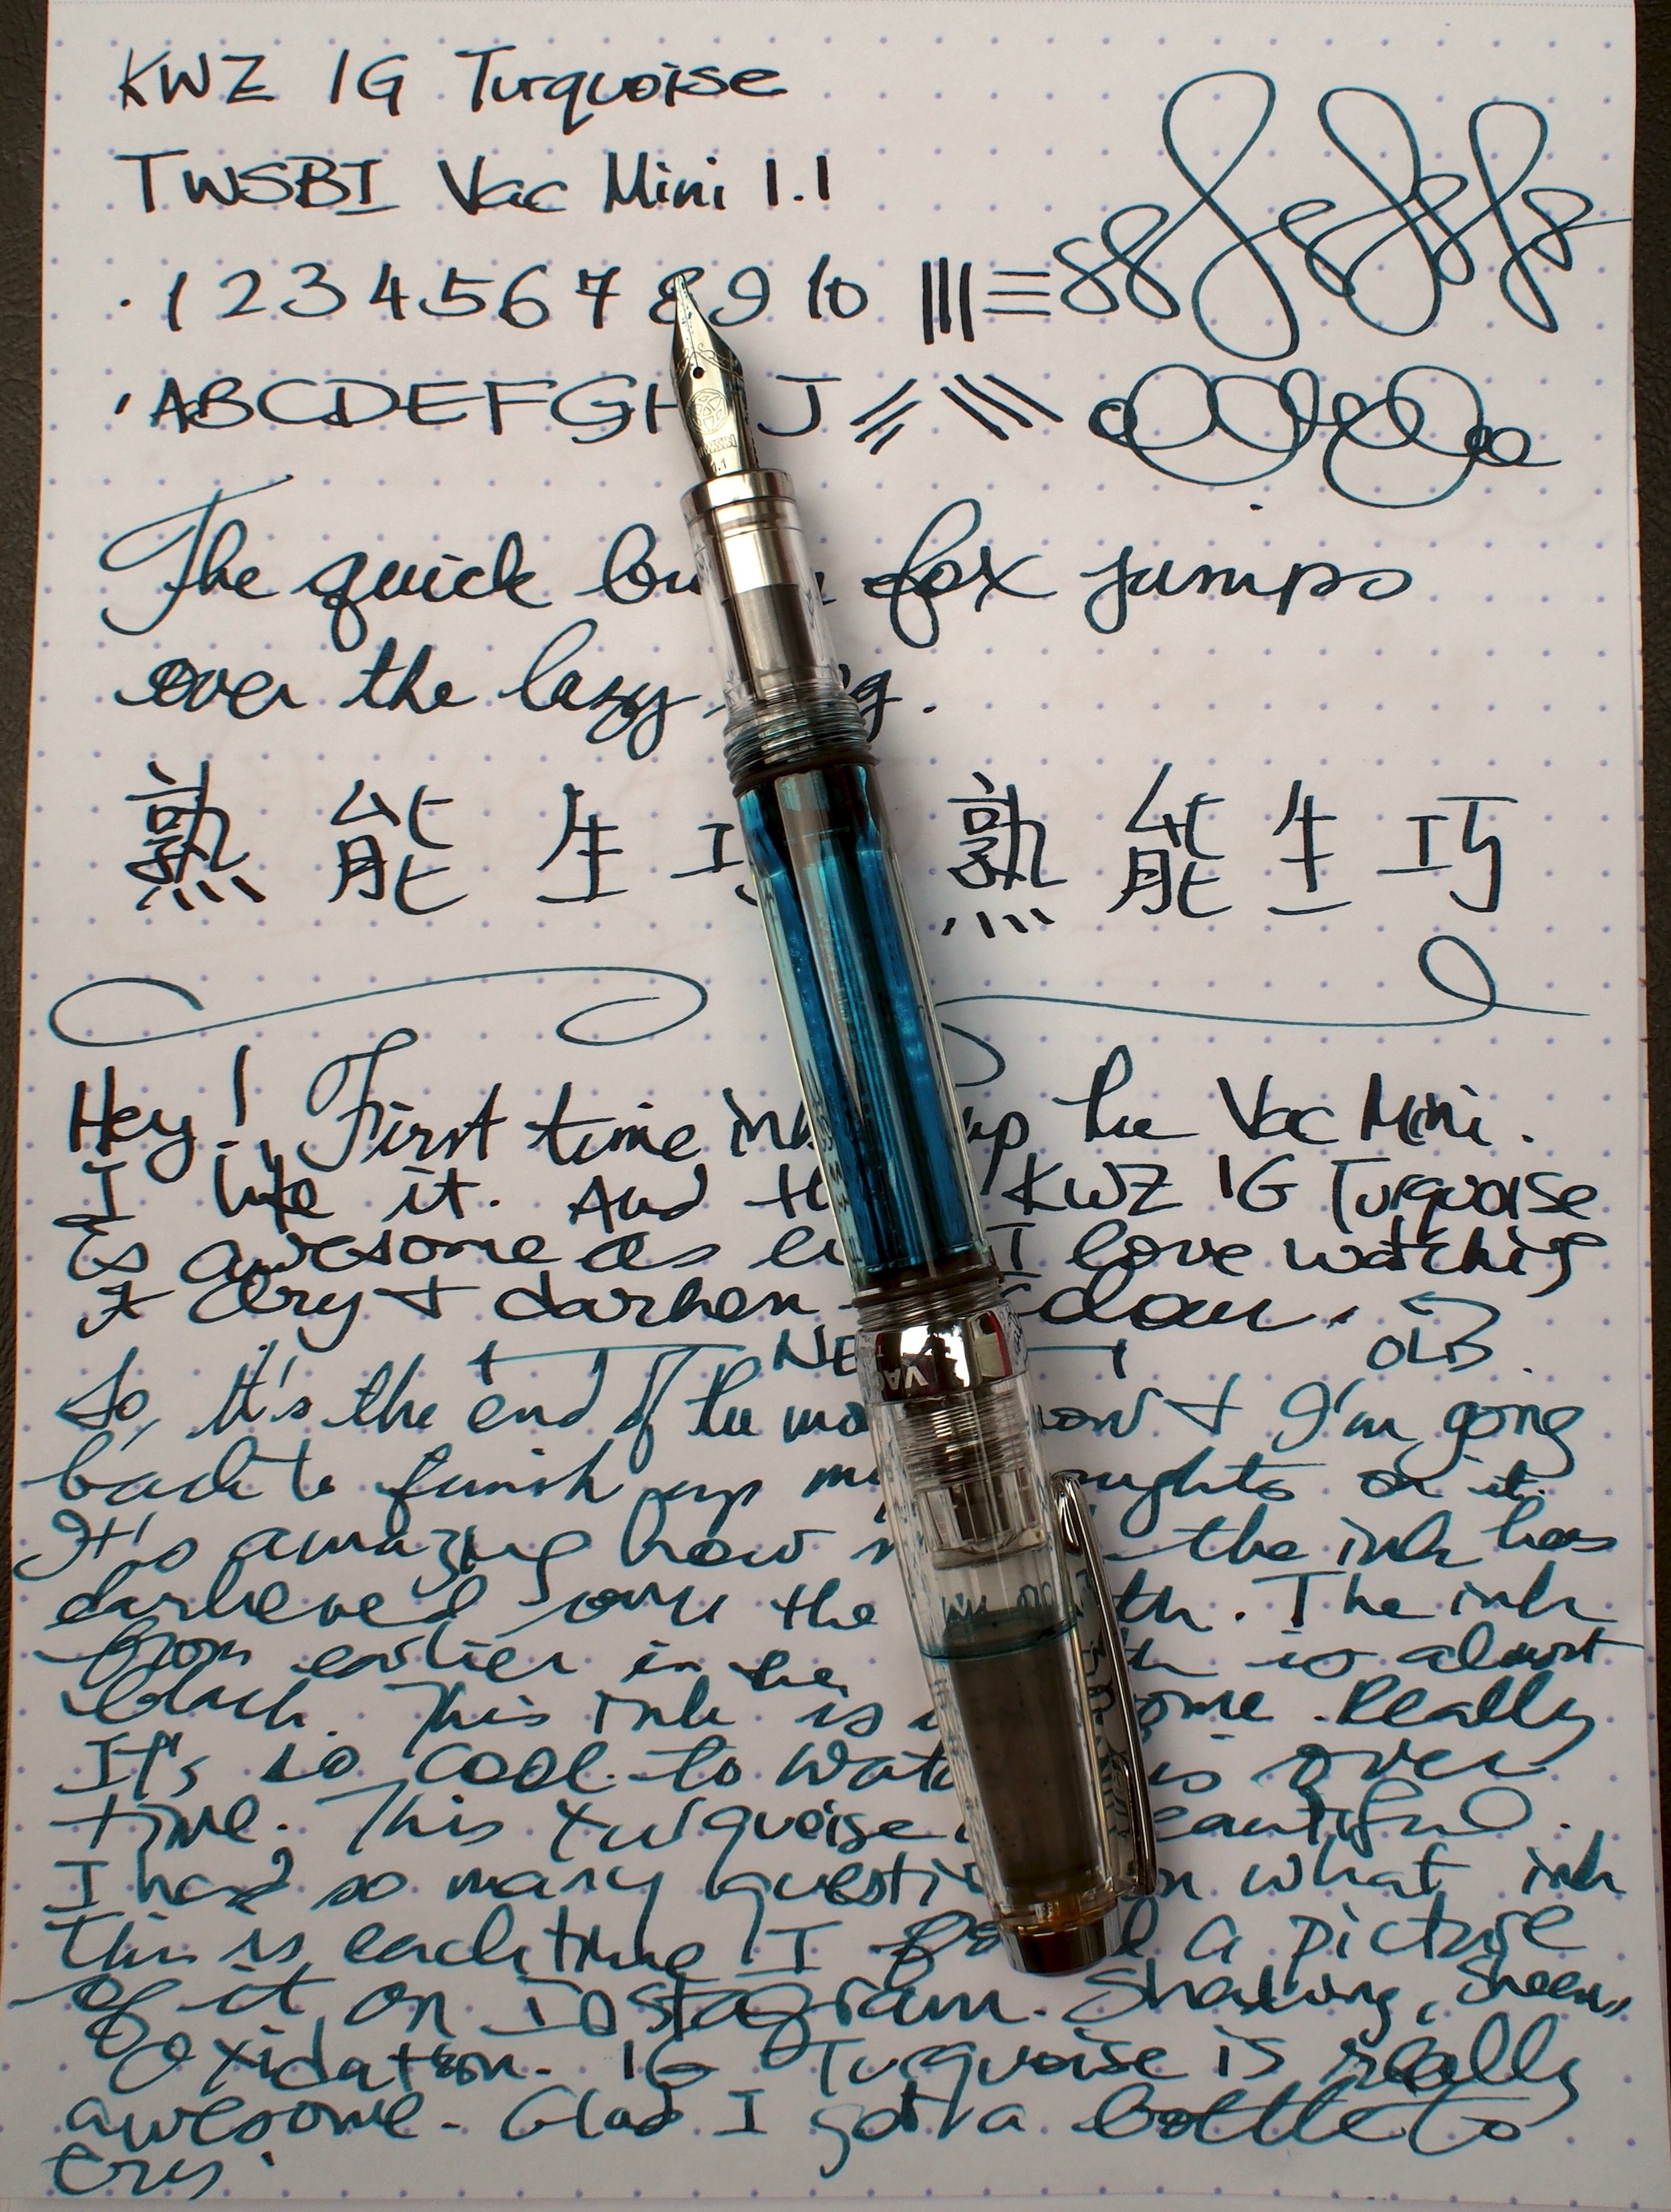 KWZ IG Turquoise
TWSBI Vac Mini 1.1
1 2 3 4 5 6 7 8 9 10
ABCDEFGH J
The quick fox jumps
over the lazy
熟能生 熟能生巧
Hey! First time up the Vac Mini.
I like it. And KWZ IG Turquoise
is awesome as I love watching
it dry + darken
OLD
So, It's the end of the now + I'm going
back to finish up my on it.
It's amazing how the ink has
darkened over the The ink
from earlier in the is almost
black. This ink is Really
It's so cool to over
time. This turquoise
I had so many on what ink
this is each time I a picture
of it on Instagram. Shading, sheen,
oxidation. IG Turquoise is really
awesome. Glad I got a bottle to
try.
1.1